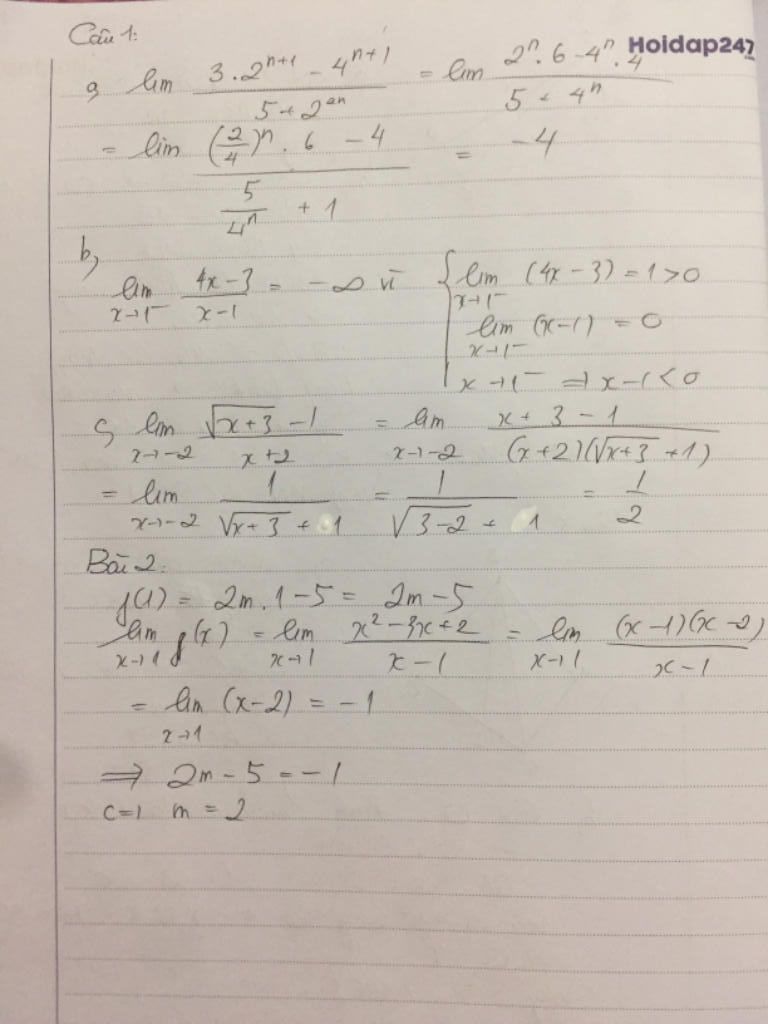 Câu 1:
Hoidap247
a, lim (3.2^{n+1} - 4^{n+1})/(5+2^{2n}) = lim (2^n.6-4^n.4)/(5+4^n)
= lim ((2/4)^n.6 - 4)/(5/4^n + 1) = -4
b, lim_{x→1^-} (4x-3)/(x-1) = -∞ vì { lim_{x→1^-} (4x-3)=1>0
lim_{x→1^-} (x-1) = 0
x→1^- ⇒ x-1<0
c, lim_{x→-2} (√(x+3) -1)/(x+2) = lim_{x→-2} (x+3-1)/((x+2)(√(x+3) +1))
= lim_{x→-2} 1/(√(x+3) + 1) = 1/(√(3-2) + 1) = 1/2
Bài 2:
f(1) = 2m.1-5 = 2m-5
lim_{x→1} f(x) = lim_{x→1} (x^2-3x+2)/(x-1) = lim_{x→1} ((x-1)(x-2))/(x-1)
= lim_{x→1} (x-2) = -1
⇒ 2m-5=-1
c=1 m = 2